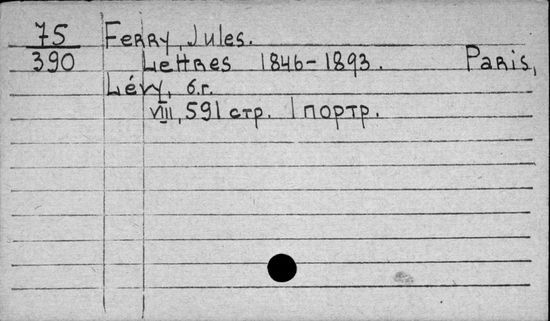 75 Ferry, Jules.
390 Lettres 1846-1893. Paris,
Lévy, б.г.
VIII, 591 стр. 1 портр.